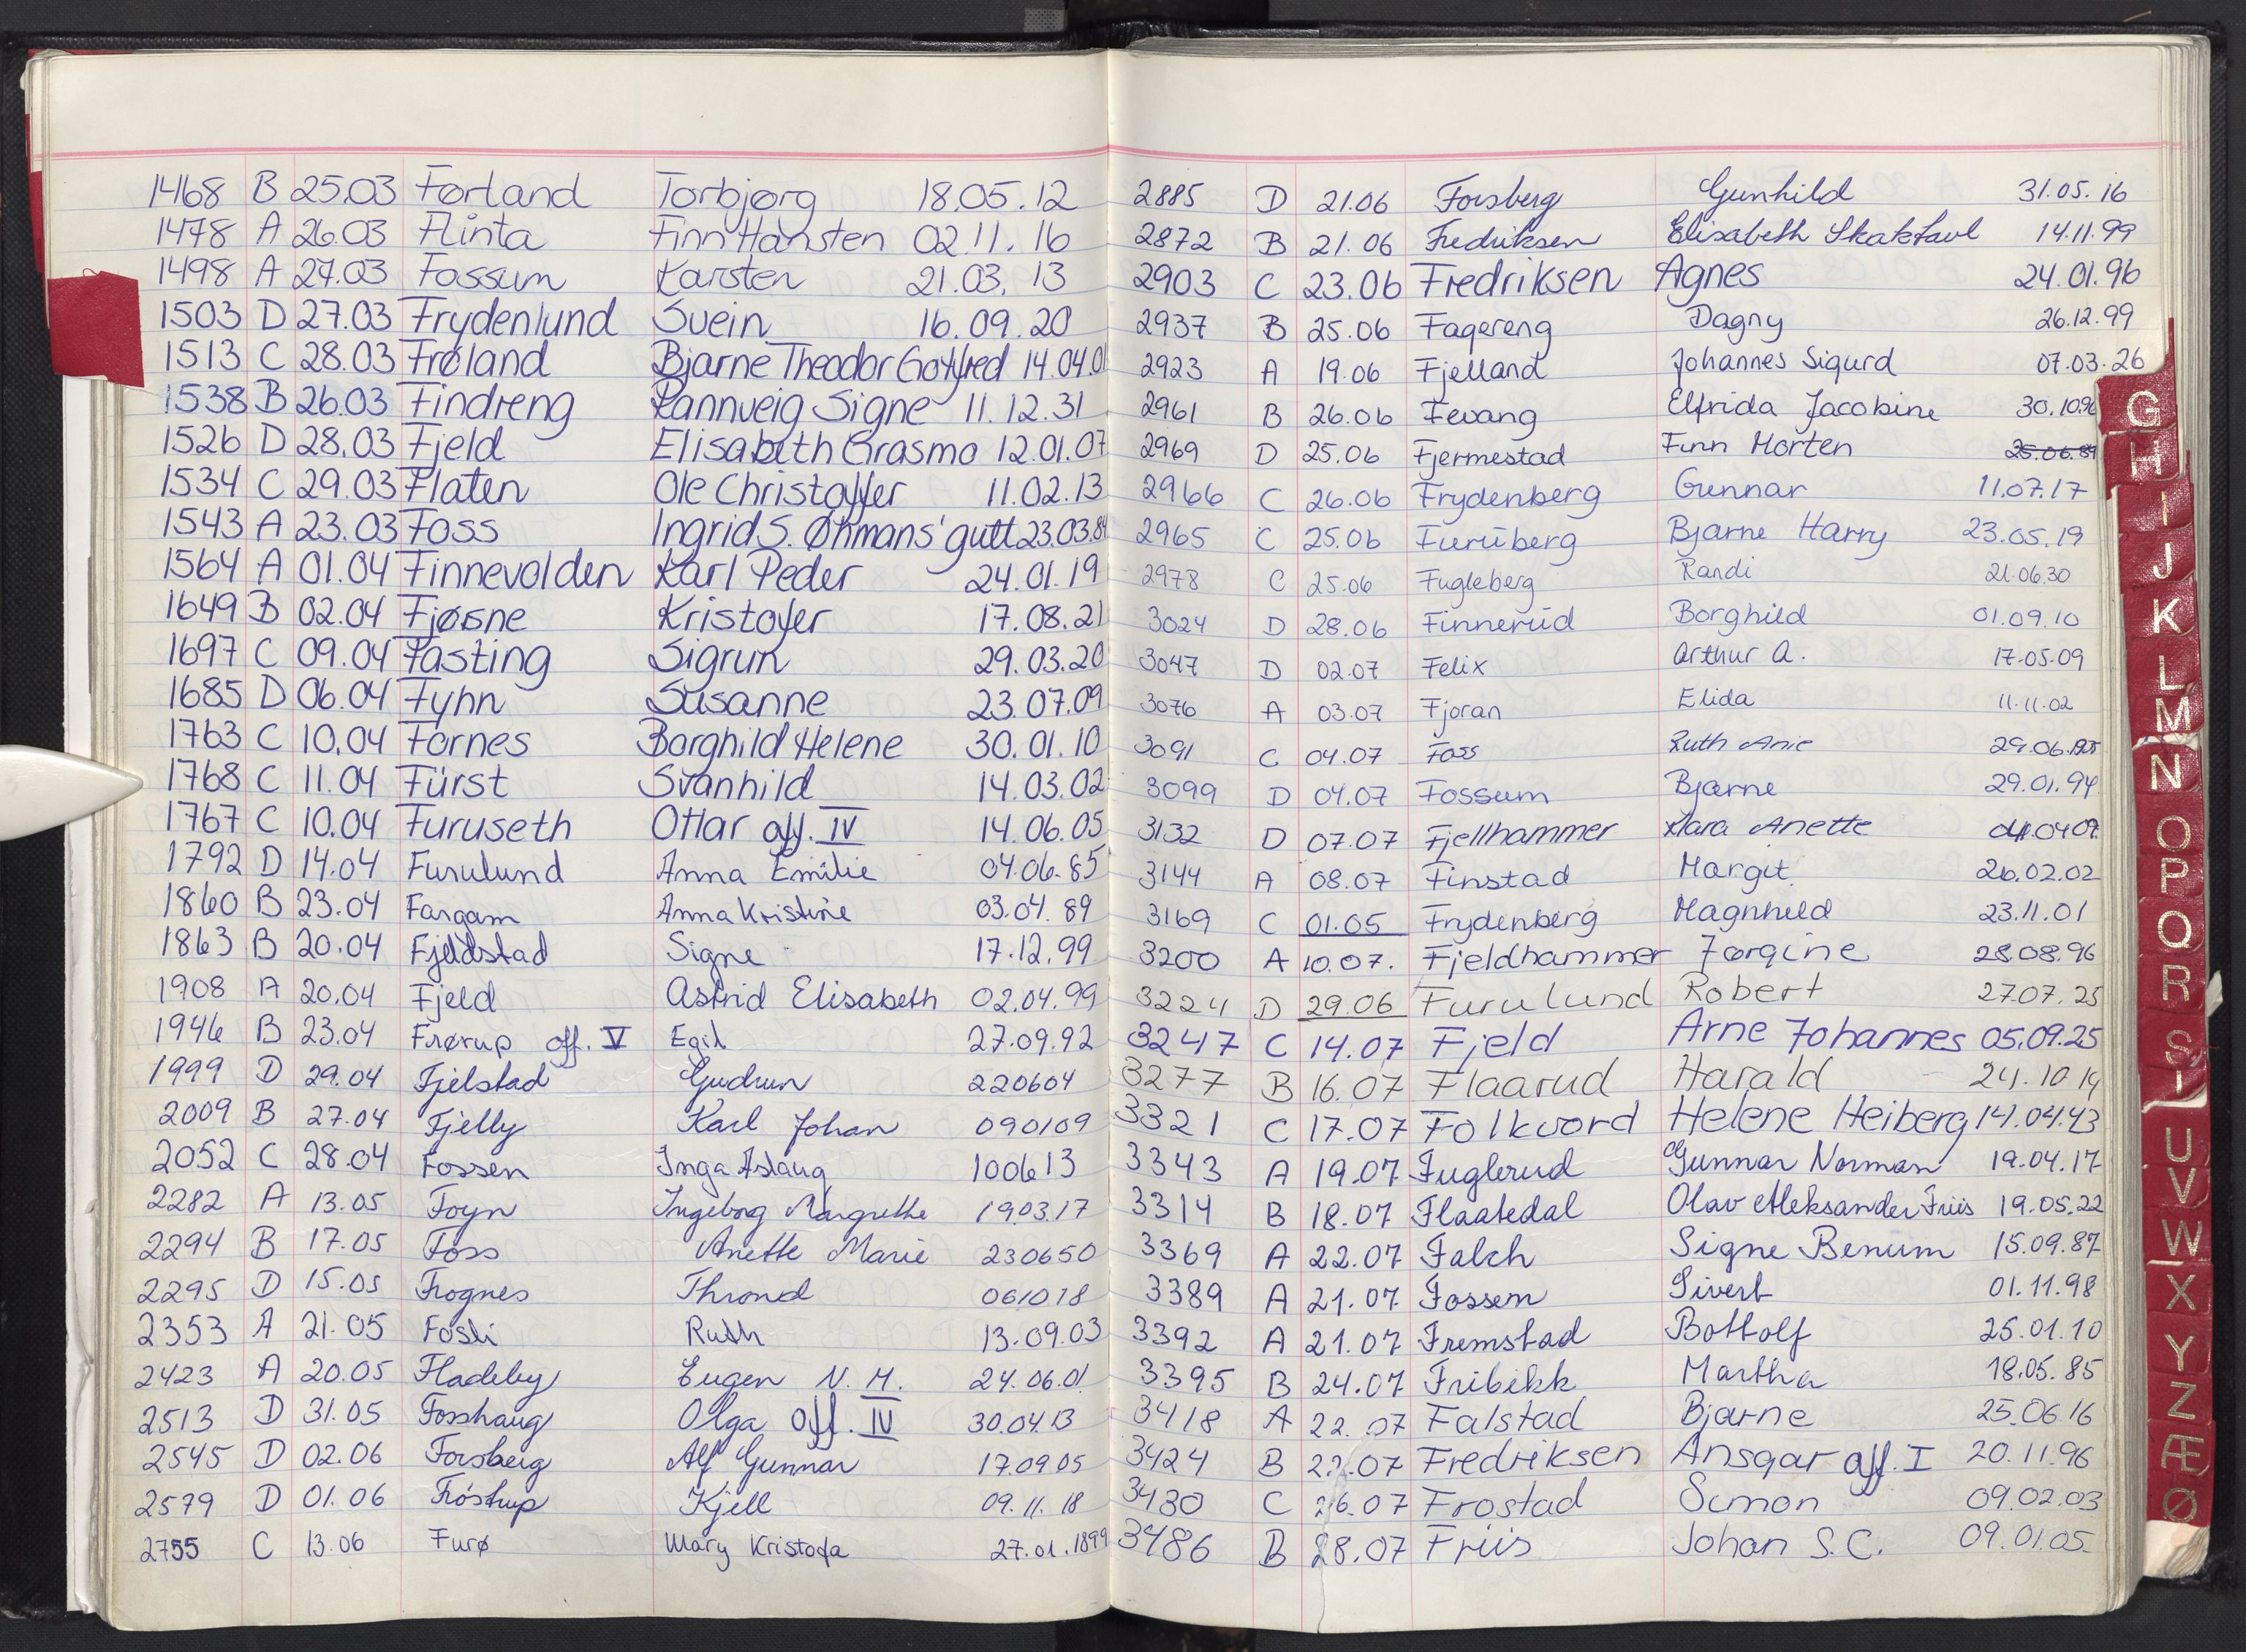 1468 B 25.03 Førland Torbjørg 18.05.12
1478 A 26.03 Flinta Finn Hansten 02.11.16
1498 A 27.03 Fossum Karsten 21.03.13
1503 D 27.03 Frydenlund Svein 16.09.20
1513 C 28.03 Frøland Bjarne Theodor Gottfred 14.04.01
1538 B 26.03 Findreng Rannveig Signe 11.12.31
1526 D 28.03 Fjeld Elisabeth Grasmo 12.01.07
1534 C 29.03 Flaten Ole Christoffer 11.02.13
1543 A 23.03 Foss Ingrid S. Øhmans' gutt 23.03.84
1564 A 01.04 Finnevolden Karl Peder 24.01.19
1649 B 02.04 Fjøsne Kristofer 17.08.21
1697 C 09.04 Fasting Sigrun 29.03.20
1685 D 06.04 Fynn Susanne 23.07.09
1763 C 10.04 Fornes Borghild Helene 30.01.10
1768 C 11.04 Fürst Svanhild 14.03.02
1767 C 10.04 Furuseth Ottar off. IV 14.06.05
1792 D 14.04 Furulund Anna Emilie 04.06.85
1860 B 23.04 Fargam Anna Kristine 03.04.89
1863 B 20.04 Fjeldstad Signe 17.12.99
1908 A 20.04 Fjeld Astrid Elisabeth 02.04.99
1946 B 23.04 Frørup off. V Egil 27.09.92
1999 D 29.04 Fjelstad Gudrun 220604
2009 B 27.04 Fjelly Karl Johan 090109
2052 C 28.04 Fossen Inga Aslaug 100613
2282 A 13.05 Foyn Ingeborg Margrethe 190317
2294 B 17.05 Foss Anette Marie 230650
2295 D 15.05 Frognes Thrond 061018
2353 A 21.05 Fosli Ruth 13.09.03
2423 A 20.05 Fladeby Eugen N. M. 24.06.01
2513 D 31.05 Fosshaug Olga off. IV 30.04.13
2545 D 02.06 Forsberg Alf Gunnar 17.09.05
2579 D 01.06 Fröstrup Kjell 09.11.18
2755 C 13.06 Furø Mary Kristofa 27.01.1899
2885 D 21.06 Forsberg Gunhild 31.05.16
2872 B 21.06 Fredriksen Elisabeth Skaktavl 14.11.99
2903 C 23.06 Fredriksen Agnes 24.01.96
2937 B 25.06 Fagereng Dagny 26.12.99
2923 A 19.06 Fjelland Johannes Sigurd 07.03.26
2961 B 26.06 Fevang Elfrida Jacobine 30.10.96
2969 D 25.06 Fjermestad Finn Morten 25.06.84
2966 C 26.06 Frydenberg Gunnar 11.07.17
2965 C 25.06 Furuberg Bjarne Harry 23.05.19
2978 C 25.06 Fugleberg Randi 21.06.30
3024 D 28.06 Finnerud Borghild 01.09.10
3047 D 02.07 Felix Arthur A. 17.05.09
3076 A 03.07 Fjoran Elida 11.11.02
3091 C 04.07 Foss Ruth Anie 29.06.1925
3099 D 04.07 Fossum Bjarne 29.01.94
3132 D 07.07 Fjellhammer Klara Anette 04.04.09
3144 A 08.07 Finstad Margit 26.02.02
3169 C 01.05 Frydenberg Magnhild 23.11.01
3200 A 10.07. Fjeldhammer Jørgine 28.08.96
3224 D 29.06 Furulund Robert 27.07.25
3247 C 14.07 Fjeld Arne Johannes 05.09.25
3277 B 16.07 Flaarud Harald 24.10.14
3321 C 17.07 Folkvord Helene Heiberg 14.04.43
3343 A 19.07 Fuglerud Gunnar Norman 19.04.17
3314 B 18.07 Flaatedal Olav Aleksander Friis 19.05.22
3369 A 22.07 Falch Signe Benum 15.09.87
3389 A 21.07 Fossem Sivert 01.11.98
3392 A 21.07 Fremstad Bottolf 25.01.10
3395 B 24.07 Fribikk Martha 18.05.85
3418 A 22.07 Falstad Bjarne 25.06.16
3424 B 22.07 Fredriksen Ansgar off. I 20.11.96
3430 C 26.07 Frostad Simon 09.02.03
3486 B 28.07 Friis Johan S.C. 09.01.05
G
H
I
J
K
L
M
N
O
P
Q
R
S
T
U
V
W
X
Y
Z
Æ
Ø